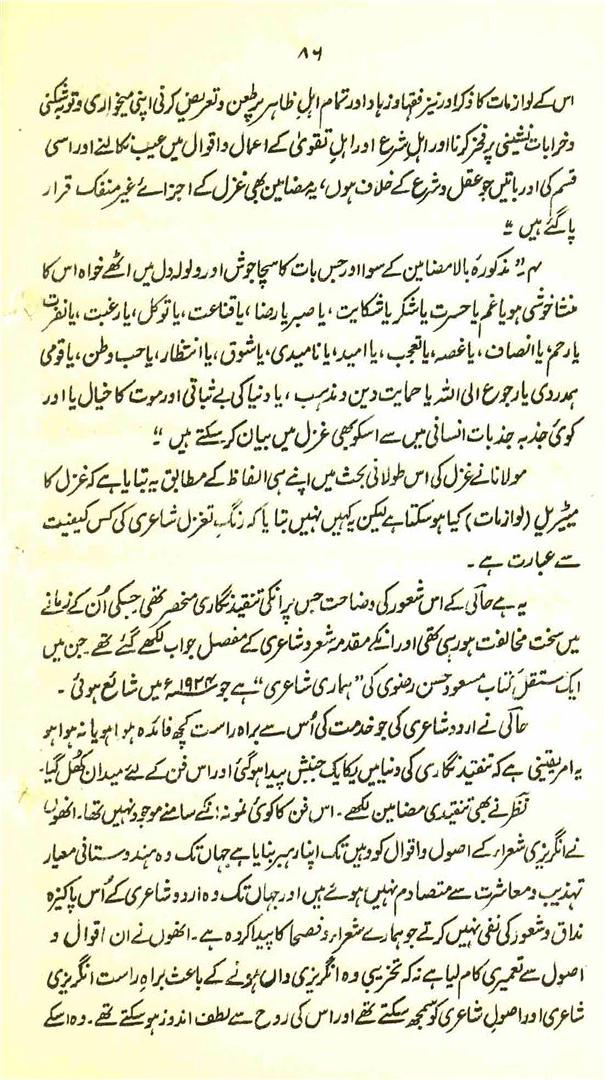 ۸۶
اس کے لوازمات کا ذکر اور نیز فقہا و زہاد اور تمام اہلِ ظاہر پر طعن و تعریض کرنی اپنی میخواری و توبہ شکنی
و خرابات نشینی پر فخر کرنا اور اہلِ شرع اور اہلِ تقویٰ کے اعمال و اقوال میں عیب نکالنے اور اسی
قسم کی اور باتیں جو عقل و شرع کے خلاف ہوں، یہ مضامین بھی غزل کے اجزائے غیر منفک قرار
پا گئے ہیں "
۴۔ " مذکورہ بالا مضامین کے سوا اور جس بات کا سچا جوش اور ولولہ دل میں اٹھے خواہ اس کا
منشا خوشی ہو یا غم یا حسرت یا شکر یا شکایت، یا صبر یا رضا، یا قناعت، یا توکل، یا رغبت، یا نفرت
یا رحم، یا انصاف، یا غصہ، یا تعجب، یا امید، یا ناامیدی، یا شوق، یا انتظار، یا حب وطن، یا قومی
ہمدردی یا رجوع الی اللہ یا حمایت دین و مذہب، یا دنیا کی بے ثباتی اور موت کا خیال یا اور
کوئی جذبہ جذبات انسانی میں سے اسکو بھی غزل میں بیان کر سکتے ہیں "
مولانا نے غزل کی اس طولانی بحث میں اپنے ہی الفاظ کے مطابق یہ بتایا ہے کہ غزل کا
میٹریل (لوازمات) کیا ہو سکتا ہے لیکن یہ کہیں نہیں بتایا کہ رنگِ تغزل شاعری کی کس کیفیت
سے عبارت ہے۔
یہ ہے حالی کے اس شعور کی وضاحت جس پر انکی تنقید نگاری منحصر تھی جسکی اُن کے زمانے
میں سخت مخالفت ہو رہی تھی اور انکے مقدمہ شعر و شاعری کے مفصل جواب لکھے گئے تھے جن میں
ایک مستقل کتاب مسعود حسن رضوی کی "ہماری شاعری" ہے جو ۱۹۲۴ء میں شائع ہوئی۔
حالی نے اردو شاعری کی جو خدمت کی اُس سے براہ راست کچھ فائدہ ہوا ہو یا نہ ہوا ہو
یہ امر یقینی ہے کہ تنقید نگاری کی دنیا میں یکایک جنبش پیدا ہو گئی اور اس فن کے لئے میدان کھل گیا۔
نظر نے بھی تنقیدی مضامین لکھے۔ اس فن کا کوئی نمونہ انکے سامنے موجود نہیں تھا۔ انھوں
نے انگریزی شعراء کے اصول و اقوال کو وہیں تک اپنا رہبر بنایا ہے جہاں تک وہ ہندوستانی معیار
تہذیب و معاشرت سے متصادم نہیں ہوئے ہیں اور جہاں تک وہ اردو شاعری کے اُس پاکیزہ
مذاق و شعور کی نفی نہیں کرتے جو ہمارے شعراء و فصحا کا پیدا کردہ ہے۔ انھوں نے ان اقوال و
اصول سے تعمیری کام لیا ہے نہ کہ تخریبی وہ انگریزی داں ہونے کے باعث براہِ راست انگریزی
شاعری اور اصولِ شاعری کو سمجھ سکتے تھے اور اس کی روح سے لطف اندوز ہو سکتے تھے۔ وہ اسکے